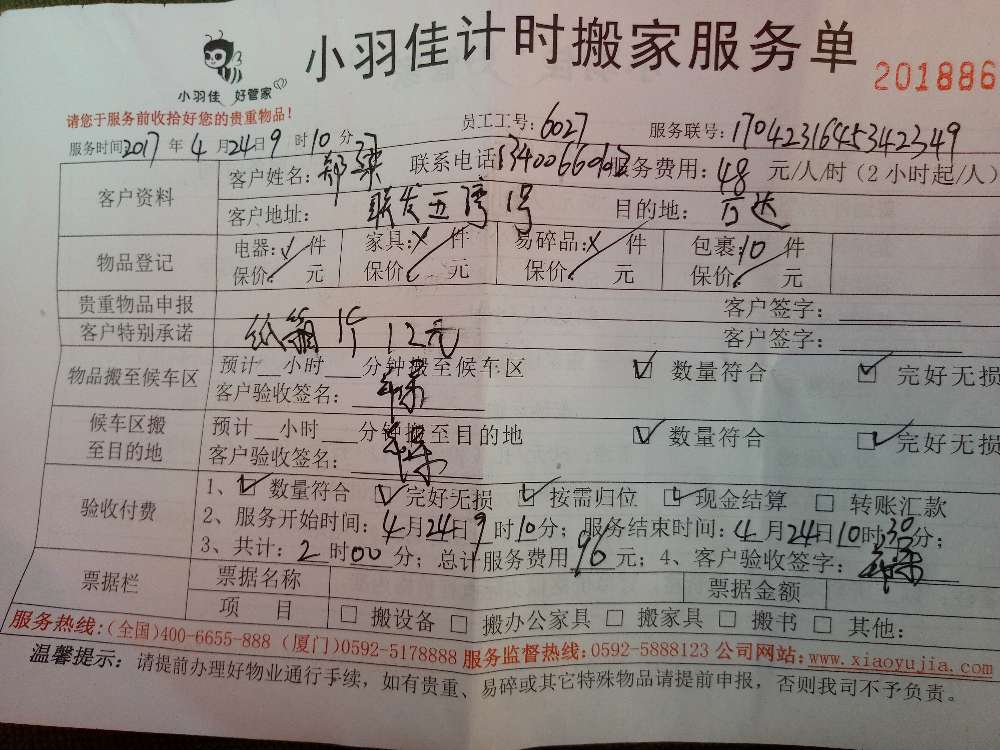 小羽佳计时搬家服务单
小羽佳 好管家
201886
请您于服务前收拾好您的贵重物品!
服务时间2017年4月24日9时10分
员工工号:6027
服务联号:1704231645342349
客户资料
客户姓名:郑
联系电话
服务费用:48元/人/时(2小时起/人)
客户地址:联发五湾1号
目的地:
物品登记
电器: 件 家具: 件 易碎品: 件 包裹:10件
保价: 元 保价: 元 保价: 元 保价: 元
贵重物品申报 客户签字:
客户特别承诺 纸箱1个 12元 客户签字:
物品搬至候车区
预计 小时 分钟搬至候车区 数量符合 完好无损
客户验收签名:
候车区搬至目的地
预计 小时 分钟搬至目的地 数量符合 完好无损
客户验收签名:
验收付费
1、数量符合 完好无损 按需归位 现金结算 转账汇款
2、服务开始时间:4月24日9时10分;服务结束时间:4月24日10时30分;
3、共计:2时00分;总计服务费用96元;4、客户验收签字:
票据栏
票据名称 票据金额
项 目 搬设备 搬办公家具 搬家具 搬书 其他:
服务热线:(全国)400-6655-888 (厦门)0592-5178888 服务监督热线:0592-5888123 公司网站:www.xiaoyujia.com
温馨提示:请提前办理好物业通行手续,如有贵重、易碎或其它特殊物品请提前申报,否则我司不予负责。